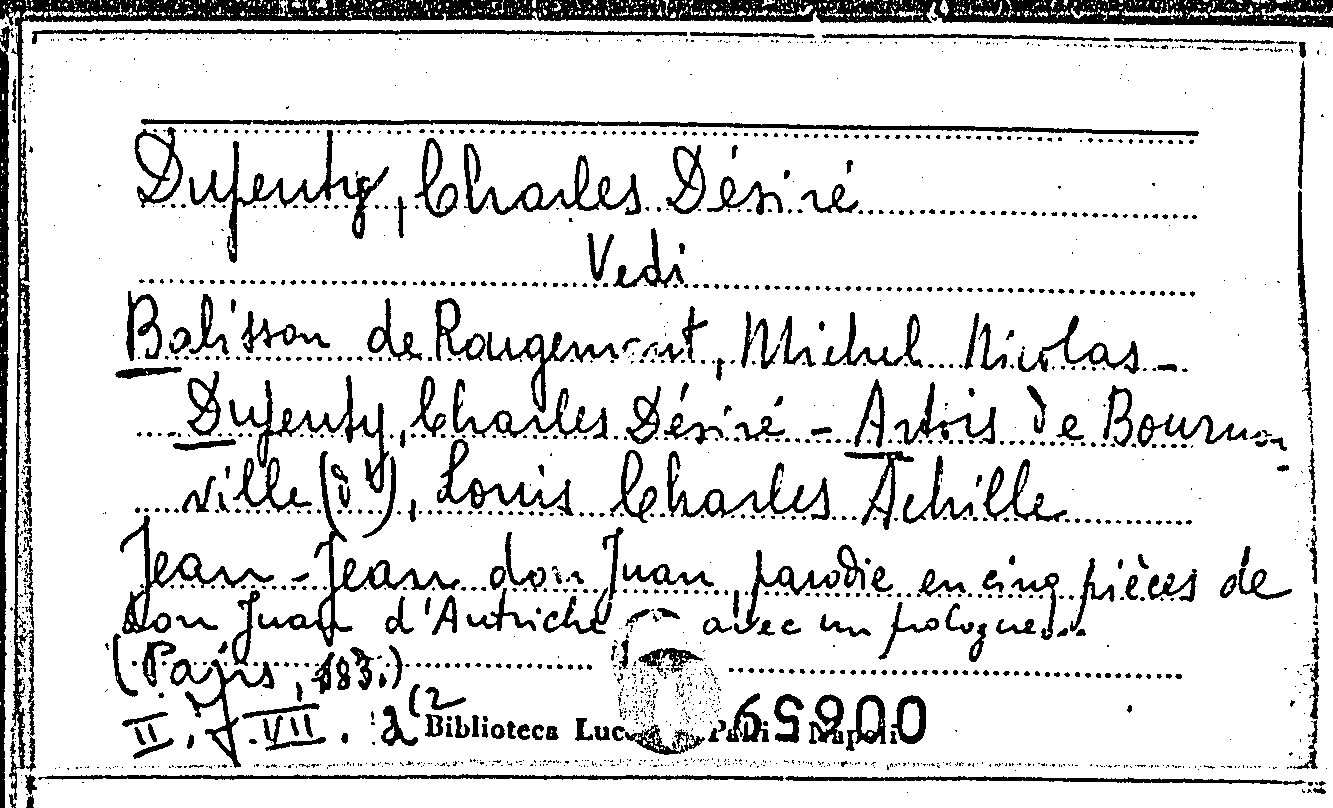 Dupeuty, Charles Désiré
Vedi
Balisson de Rougemont, Michel Nicolas -
Dupeuty, Charles Désiré - Artois de Bournon
ville (d'), Louis Charles Achille
Jean-Jean don Juan, parodie en cinq pièces de
Don Juan d'Autriche avec un prologue...
(Paris, 183.)
II. J. VII. 2 (2
Biblioteca Lucchesi Palli - Napoli